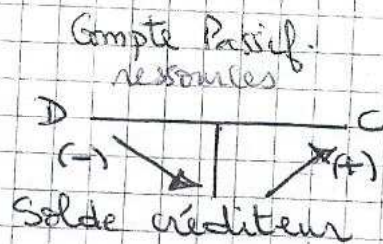 Compte Passif.
ressources
D C
(-) (+)
Solde créditeur